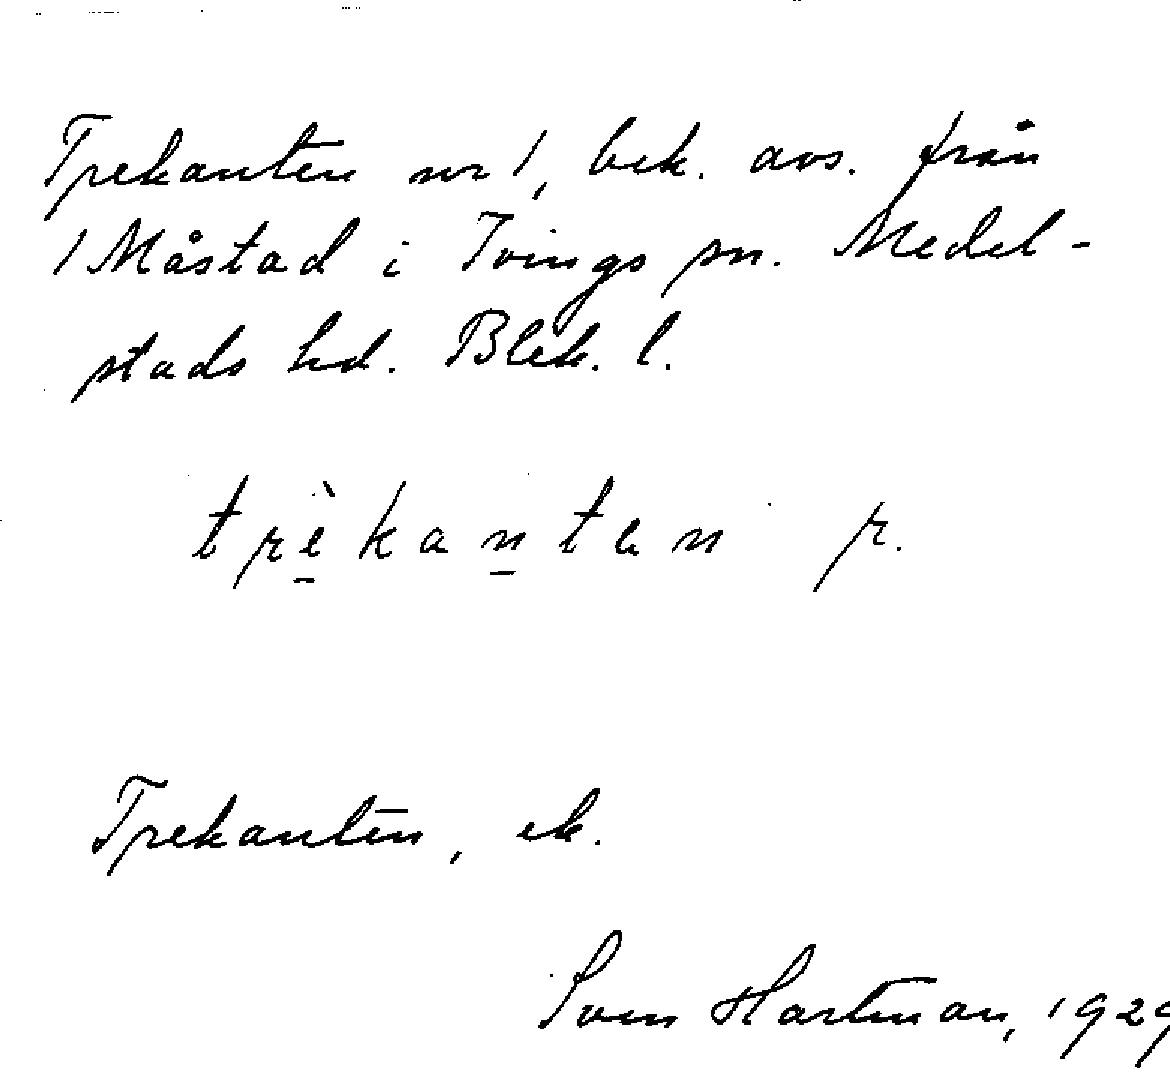 Trekanten nr 1, bek. avs. från
1 Måstad i Tvings sn. Medel-
stads hd. Blek. l.
trè̲kan̲ten r.
Trekanten, ek.
Sven Hartman, 1929